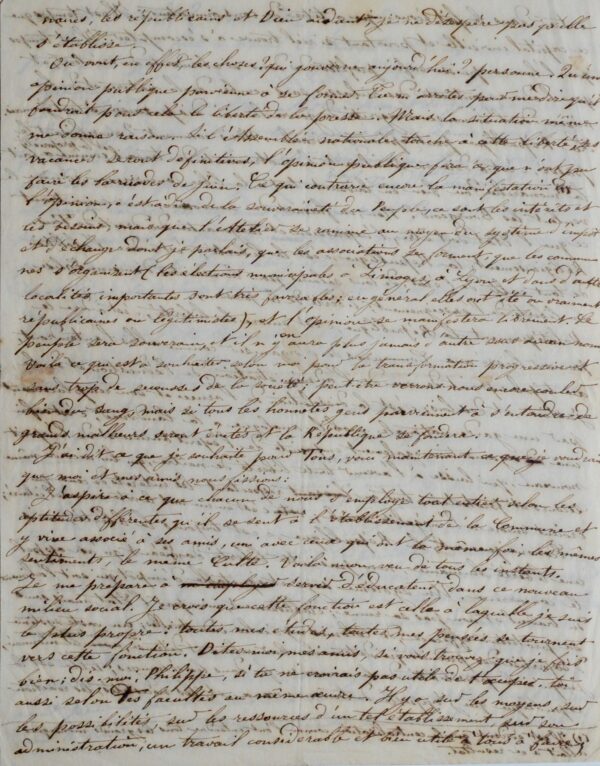 nales, les républicains et Dieu aidant, je ne désespère pas qu'elle
s'établisse.
Où vont, en effet, les choses? qui gouverne aujourd'hui? personne. Qu'une
opinion publique parvienne à se former. Tu m'arrêtes pour me dire qu'il
faudrait pour cela la liberté de la presse. Mais la situation même
me donne raison. Si l'Assemblée nationale touche à cette liberté, ses
vacances seront définitives, l'opinion publique fera ce que n'ont pu
faire les barricades de juin. Ce qui contrarie encore la manifestation de
l'opinion, c'est-à-dire de la souveraineté du Peuple, ce sont les intérêts et
les besoins, mais que l'atelier se ranime au moyen du système d'impôt
et d'échange dont je parlais, que les associations se forment, que les commu-
nes s'organisent (les élections municipales à Limoges, à Lyon et dans d'autres
localités importantes sont très favorables; en général elles ont été ou vraiment
républicaines ou légitimistes), et l'opinion se manifestera librement. Le
peuple sera souverain, et il n'y aura plus jamais d'autre
Voilà ce qui est à souhaiter selon moi pour la transformation progressive et
sans trop de secousses de la société. peut-être verrons nous encore couler
bien du sang, mais si tous les honnêtes gens parviennent à s'entendre de
grands malheurs seront évités et la République se fondra.
J'ai dit ce que je souhaite pour Tous, voici maintenant ce que je voudrais
que moi et mes amis nous fissions:
J'aspire à ce que chacun de nous s'emploie tout entier selon les
aptitudes différentes qu'il se sent à l'établissement de la Commune et
y vive associé à ses amis, uni avec ceux qui ont la même foi, les mêmes
sentiments, le même Culte. Voilà mon vœu de tous les instants.
Je me prépare à servir d'éducateur dans ce nouveau
milieu social. Je crois que cette fonction est celle à laquelle je suis
le plus propre: toutes mes études, toutes mes pensées se tournent
vers cette fonction. Dites-moi, mes amis, si vous trouvez que je fais
bien; dis-moi, Philippe, si tu ne croirais pas utile de t'occuper, toi
aussi, selon tes facultés au même œuvre. Il y a sur les moyens, sur
les possibilités, sur les ressources d'un tel établissement, sur son
administration, un travail considérable et bien utile à tous à faire;